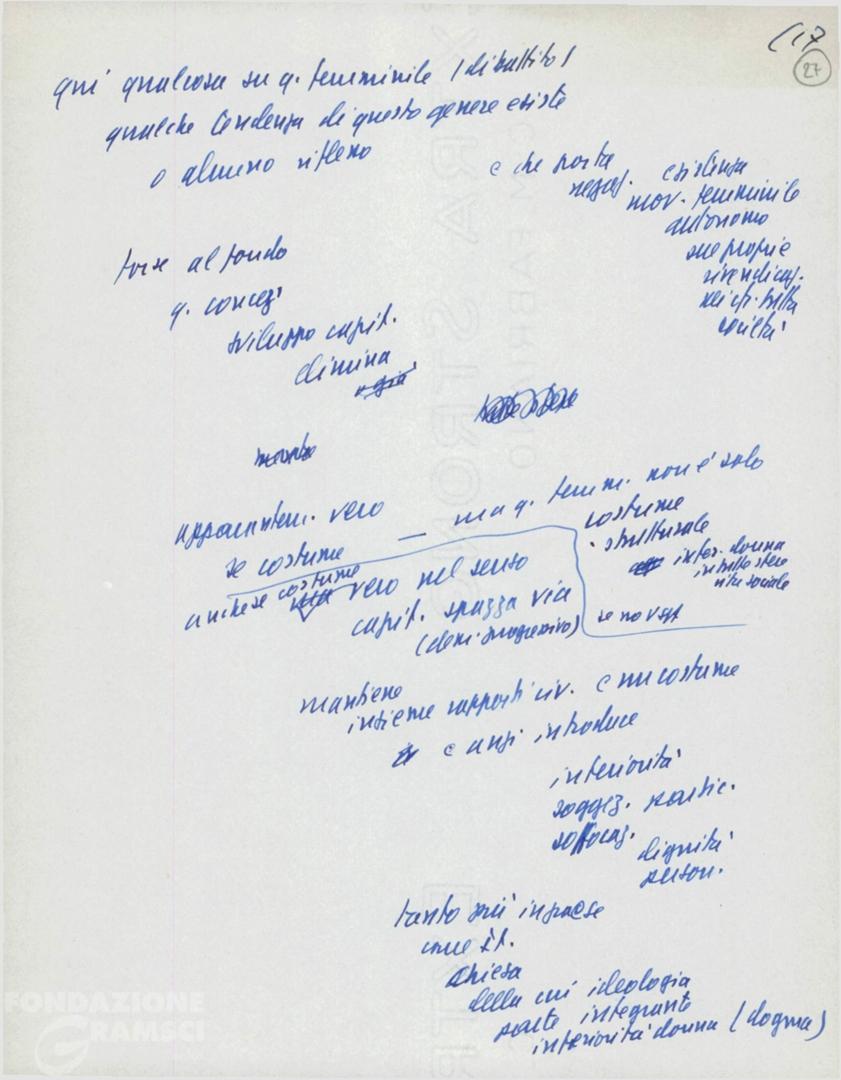 (17
27
qui qualcosa su q. femminile (dibattito)
qualche tendenza di questo genere esiste
o almeno riflesso
e che porta
negaz.
esistenza
mov. femminile
autonomo
sue proprie
rivendicaz.
tutta
società
forse al fondo
q. concez.
sviluppo capit.
elimina
apparentem. vero
se costume
— ma q. femm. non è solo
costume
strutturale
infer. donna
in tutto
vita sociale
anche se costume
vero nel senso
capit. spazza via
(elem. progressivo)
se no
mantiene
insieme rapporti civ. e costume
e anzi introduce
inferiorità
soggez. partic.
soffocaz.
dignità
person.
tanto più in paese
come It.
chiesa
della cui ideologia
parte integrante
inferiorità donna (dogma)
FONDAZIONE
GRAMSCI